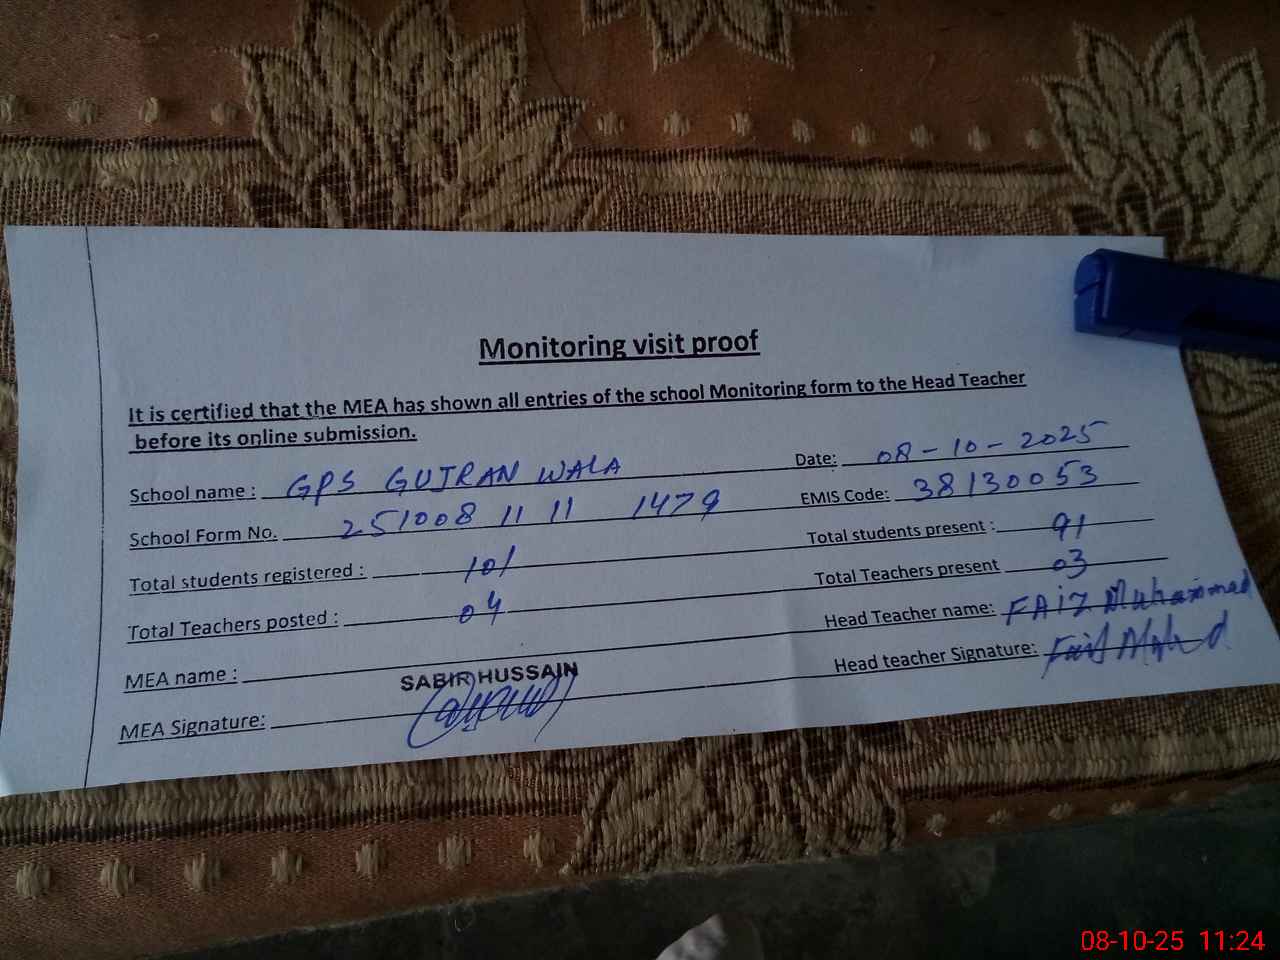 Monitoring visit proof
It is certified that the MEA has shown all entries of the school Monitoring form to the Head Teacher
before its online submission.
School name : GPS GUJRAN WALA Date: 08-10-2025
School Form No. 251008 11 11 1479 EMIS Code: 38130053
Total students registered : 101 Total students present : 91
Total Teachers posted : 04 Total Teachers present 03
MEA name : SABIR HUSSAIN Head Teacher name: FAIZ Muhammad
MEA Signature: Head teacher Signature:
08-10-25 11:24